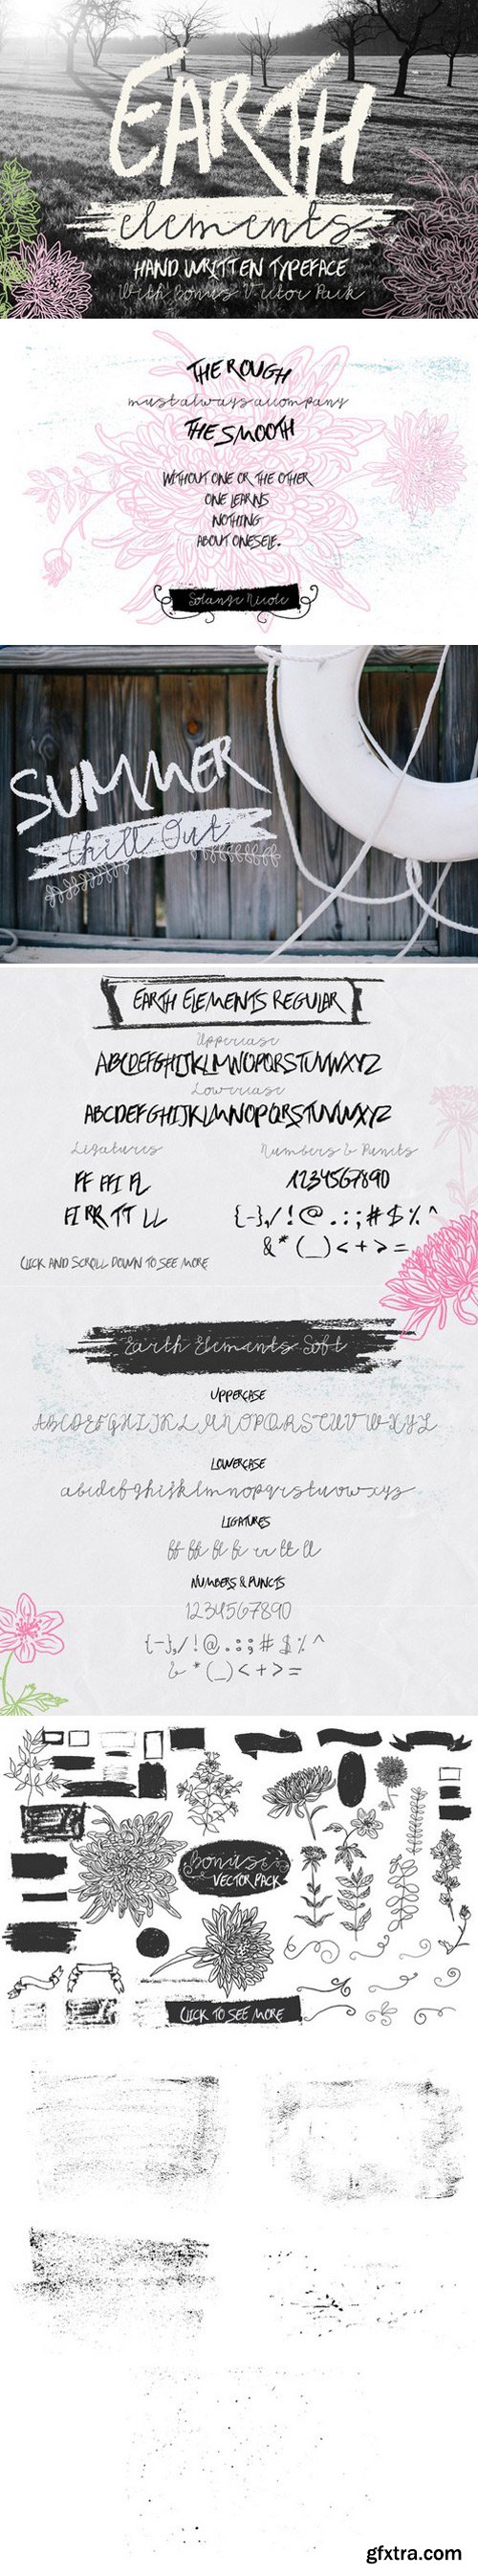 EARTH
elements
HAND WRITTEN TYPEFACE
With Bonus Vector Pack
THE ROUGH
must always accompany
THE SMOOTH
WITHOUT ONE OR THE OTHER
ONE LEARNS
NOTHING
ABOUT ONESELF.
Solange Nicole
SUMMER
Chill Out
EARTH ELEMENTS REGULAR
Uppercase
ABCDEFGHIJKLMNOPQRSTUVWXYZ
Lowercase
ABCDEFGHIJKLMNOPQRSTUVWXYZ
Ligatures
Numbers & Puncts
FF FFI FL
1234567890
FI RR TT LL
{-},/!@.:;#$%^
&*(_)<+>=
CLICK AND SCROLL DOWN TO SEE MORE
Earth Elements Soft
UPPERCASE
ABCDEFGHIJKLMNOPQRSTUVWXYZ
LOWERCASE
abcdefghijklmnopqrstuvwxyz
LIGATURES
ff ffi fl fi rr tt ll
NUMBERS & PUNCTS
1234567890
{-},/!@.:;#$%^
&*(_)<+>=
Bonus
VECTOR PACK
CLICK TO SEE MORE
gfxtra.com